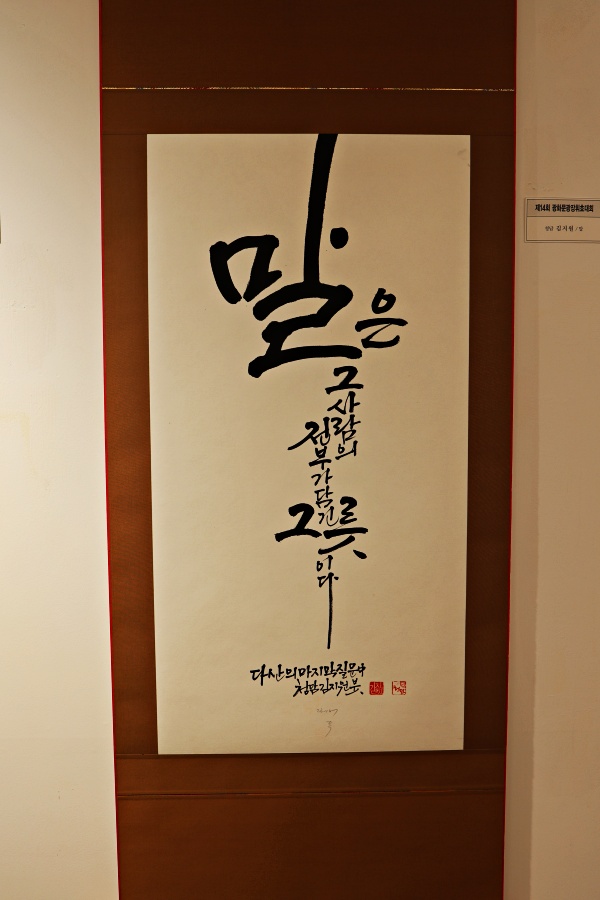 말은
그
사람의
전부가
담긴
그릇
이다
다산의마지막질문中
김지원
제14회 광화문광장휘호대회
김지원